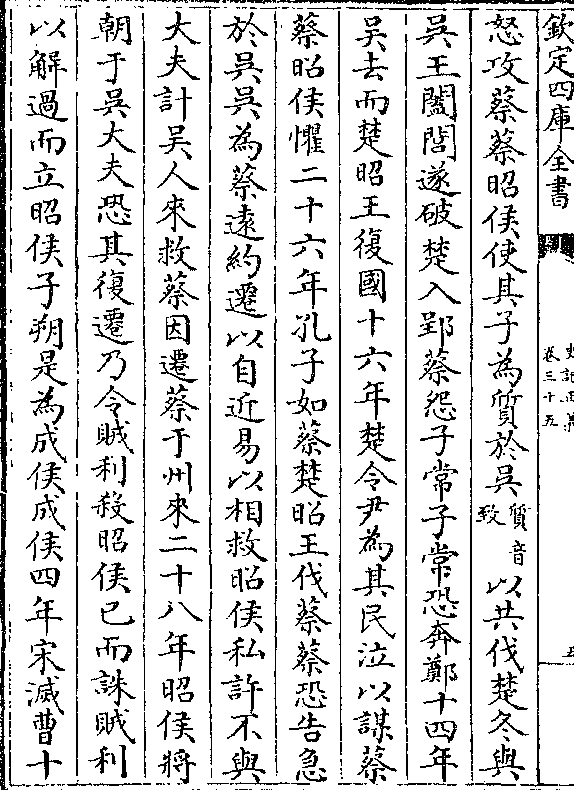 欽定四庫全書
史記正義
卷三十五
怒攻蔡蔡昭侯使其子為質於吳質音致以共伐楚冬與
吳王闔閭遂破楚入郢蔡怨子常子常恐奔鄭十四年
吳去而楚昭王復國十六年楚令尹為其民泣以謀蔡
蔡昭侯懼二十六年孔子如蔡楚昭王伐蔡蔡恐告急
於吳吳為蔡遠約遷以自近易以相救昭侯私許不與
大夫計吳人來救蔡因遷蔡于州來二十八年昭侯將
朝于吳大夫恐其復遷乃令賊利殺昭侯已而誅賊利
以解過而立昭侯子朔是為成侯成侯四年宋滅曹十